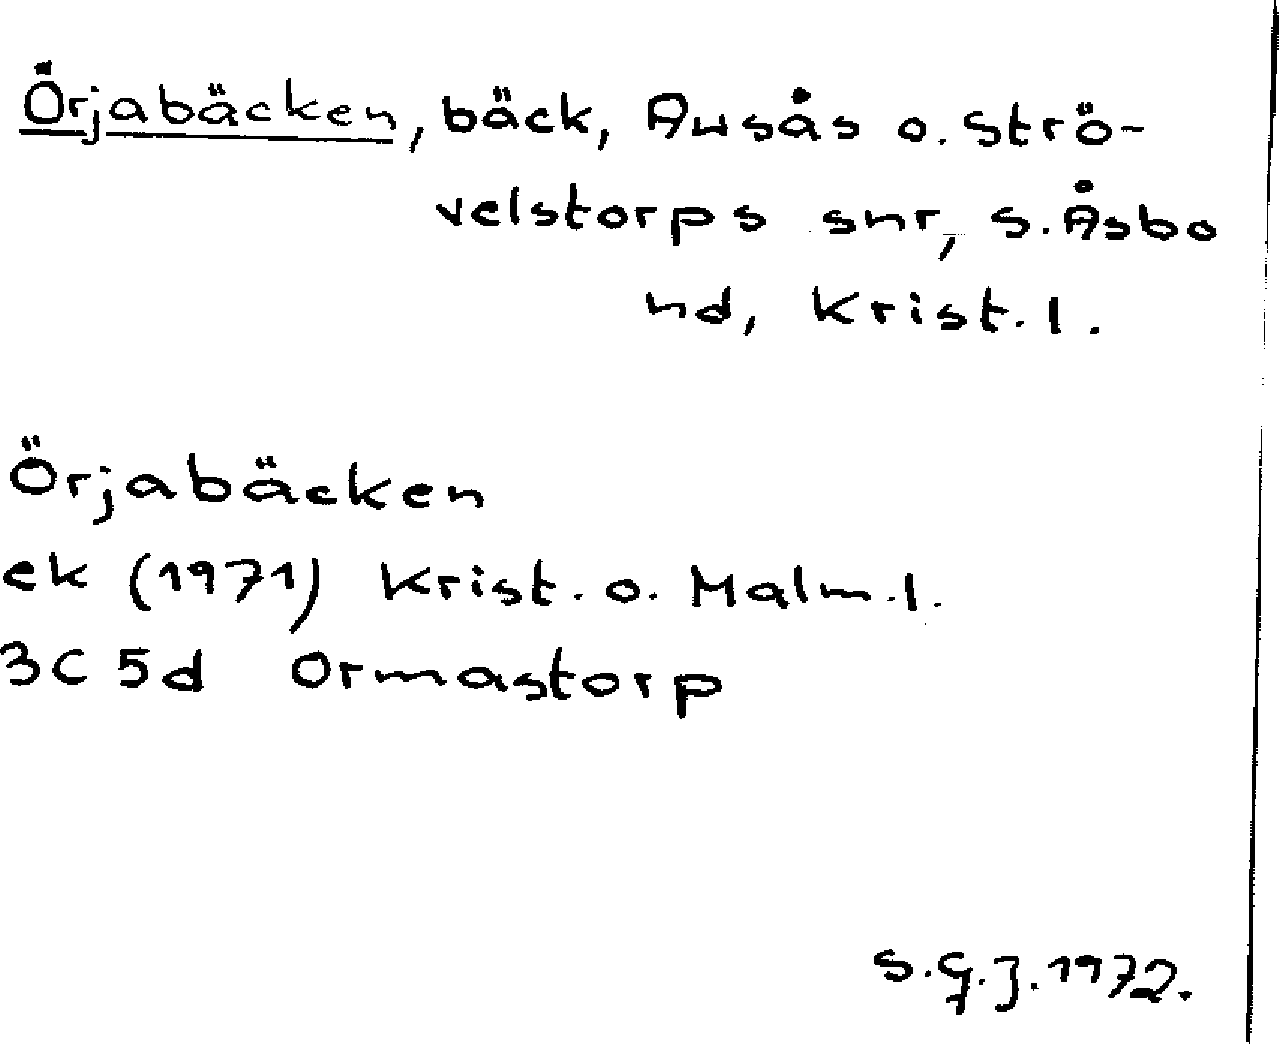 Örjabäcken, bäck, Ausås o. Strö-
velstorps snr, S. Åsbo
hd, Krist. l.
Örjabäcken
ek (1971) Krist. o. Malm. l.
3C 5d Ormastorp
S.G.J. 1972.